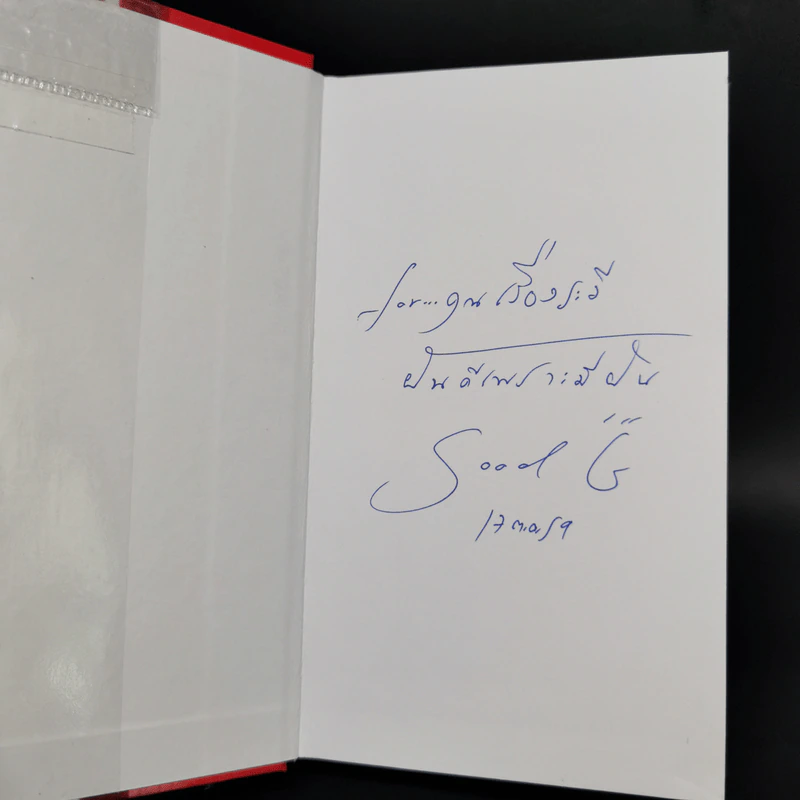 for... คุณเรืองระวี
ฝันดีเพราะมีฝัน
Good
17 ต.ค. 59